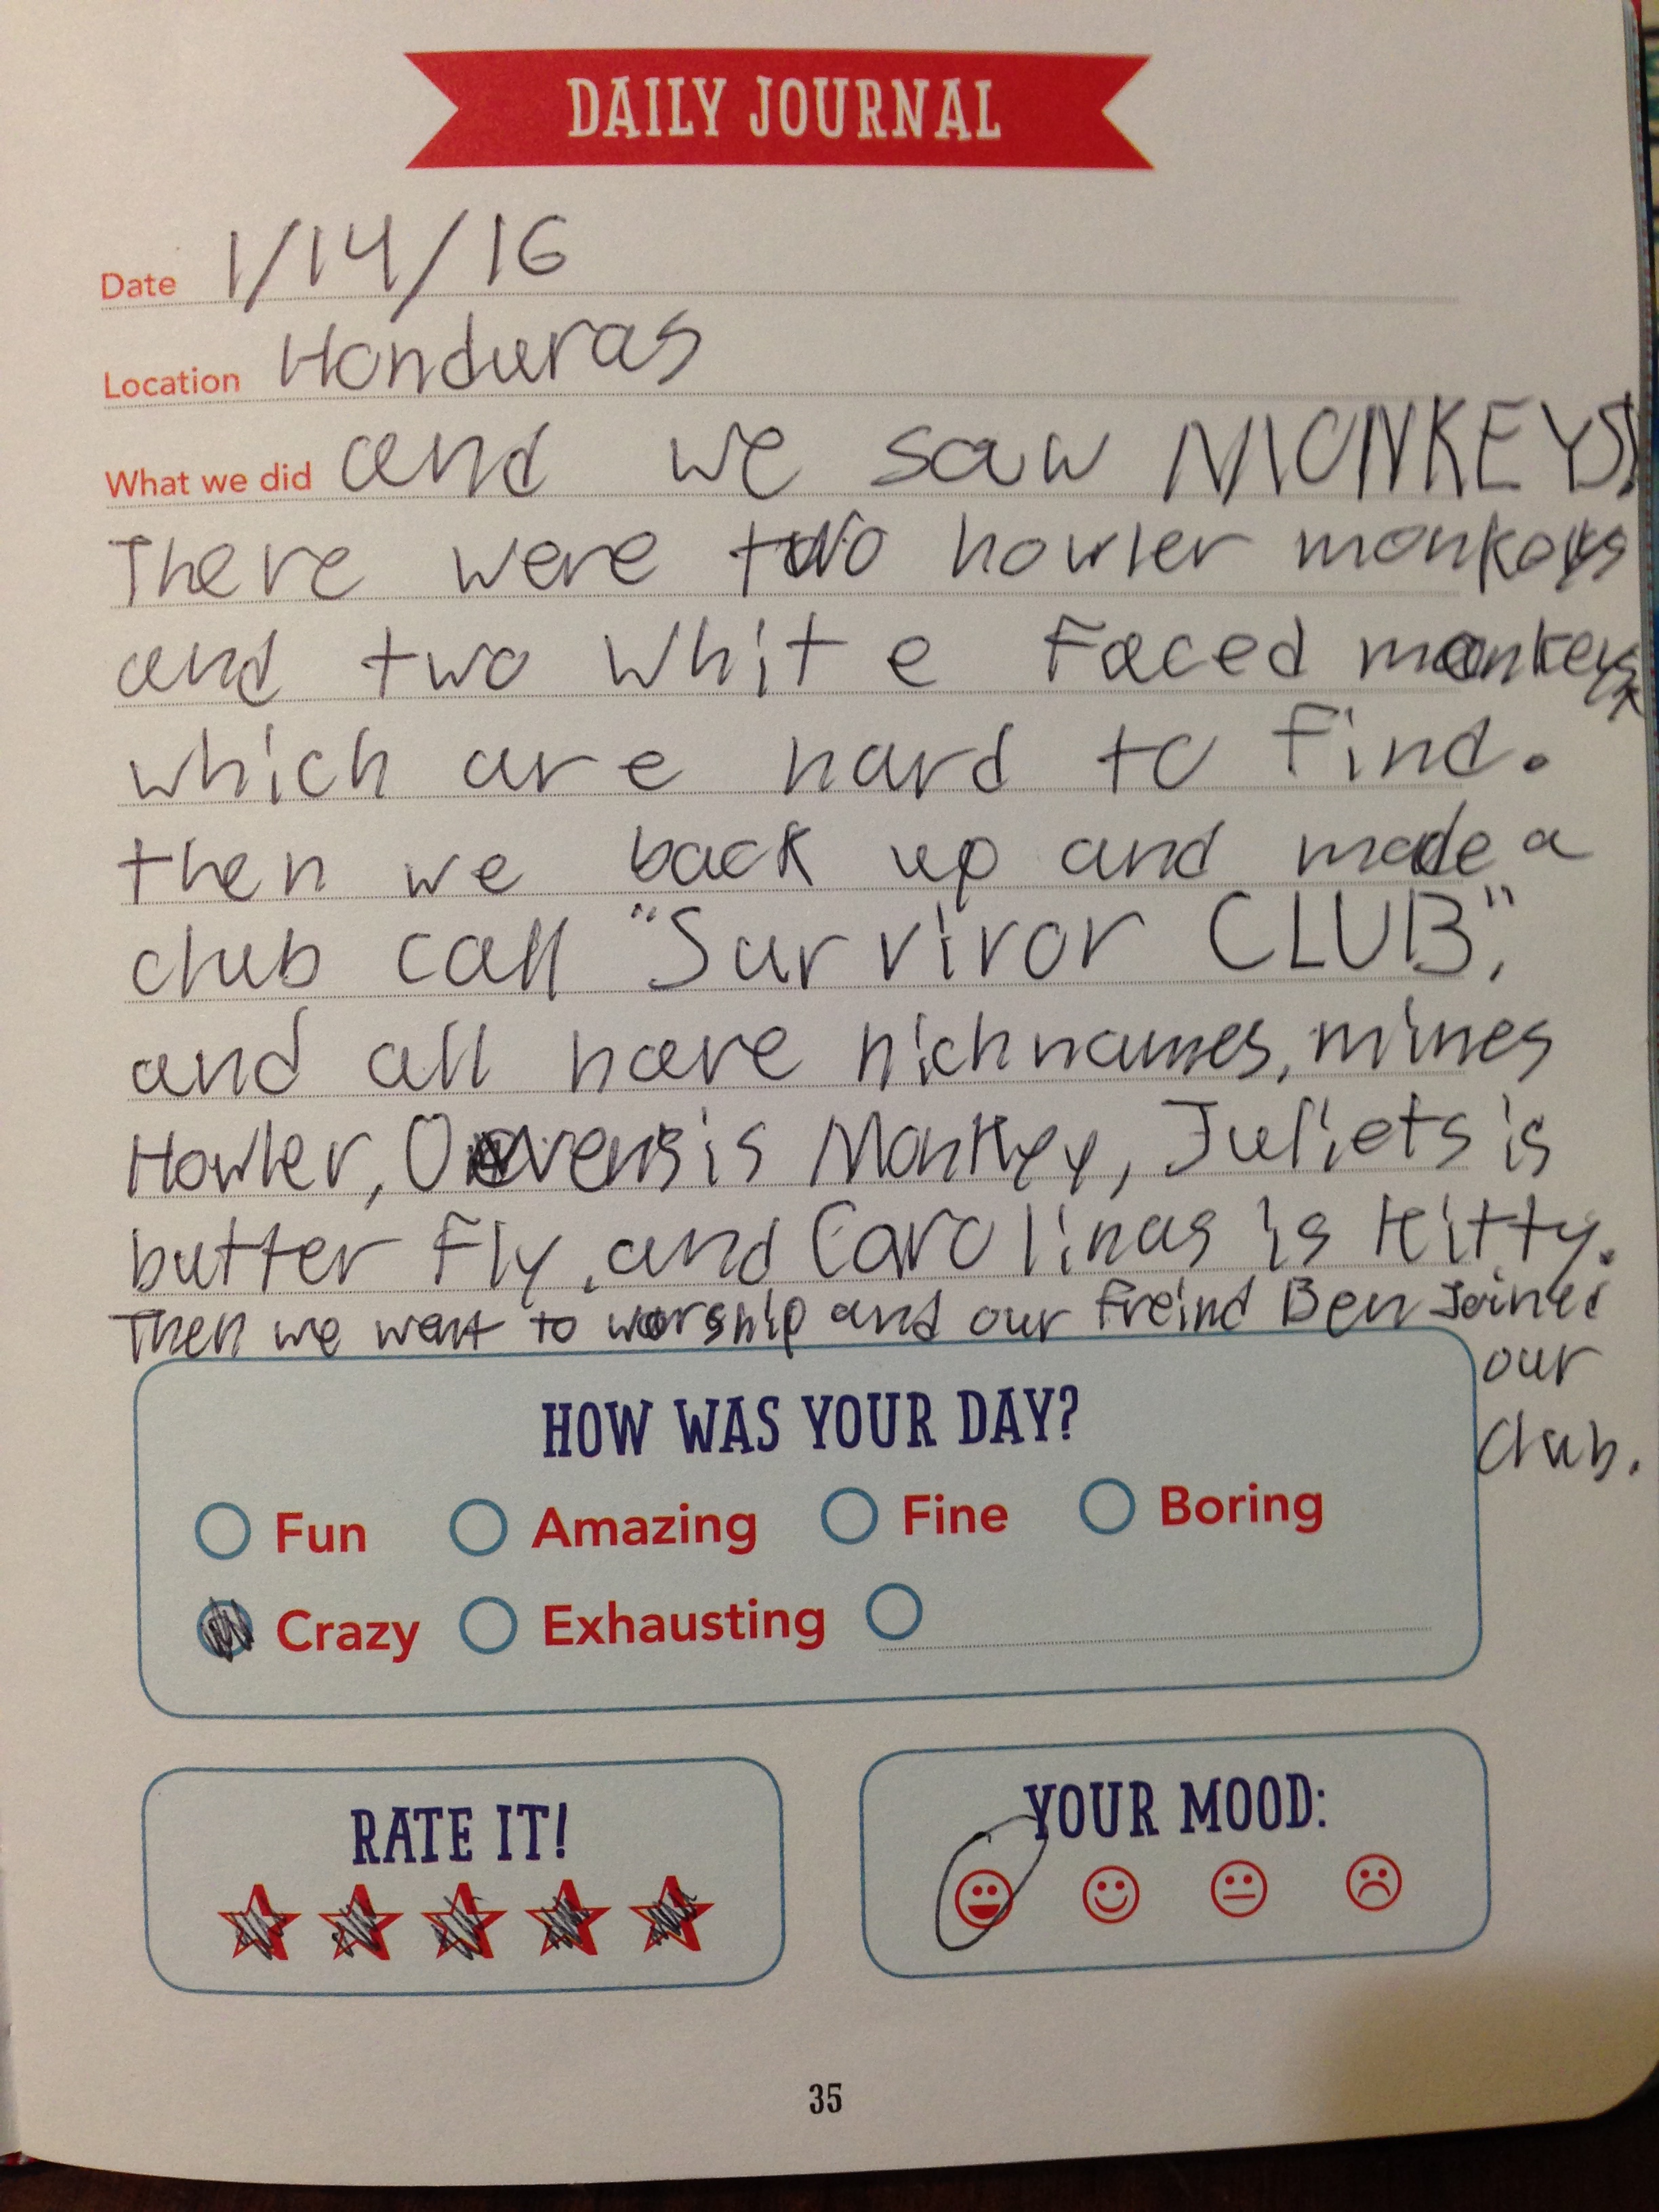 DAILY JOURNAL
Date 1/14/16
Location Honduras
What we did and we saw MONKEYS!
There were two howler monkeys
and two white faced monkeys
which are hard to find.
then we back up and made a
club call "Survivor CLUB",
and all have nichnames, mines
Howler, Owens is Monkey, Juliets is
butter fly, and Carolinas is Kitty.
Then we went to worship and our freind Ben joined
our
club.
HOW WAS YOUR DAY?
Fun Amazing Fine Boring
Crazy Exhausting
RATE IT!
YOUR MOOD:
35